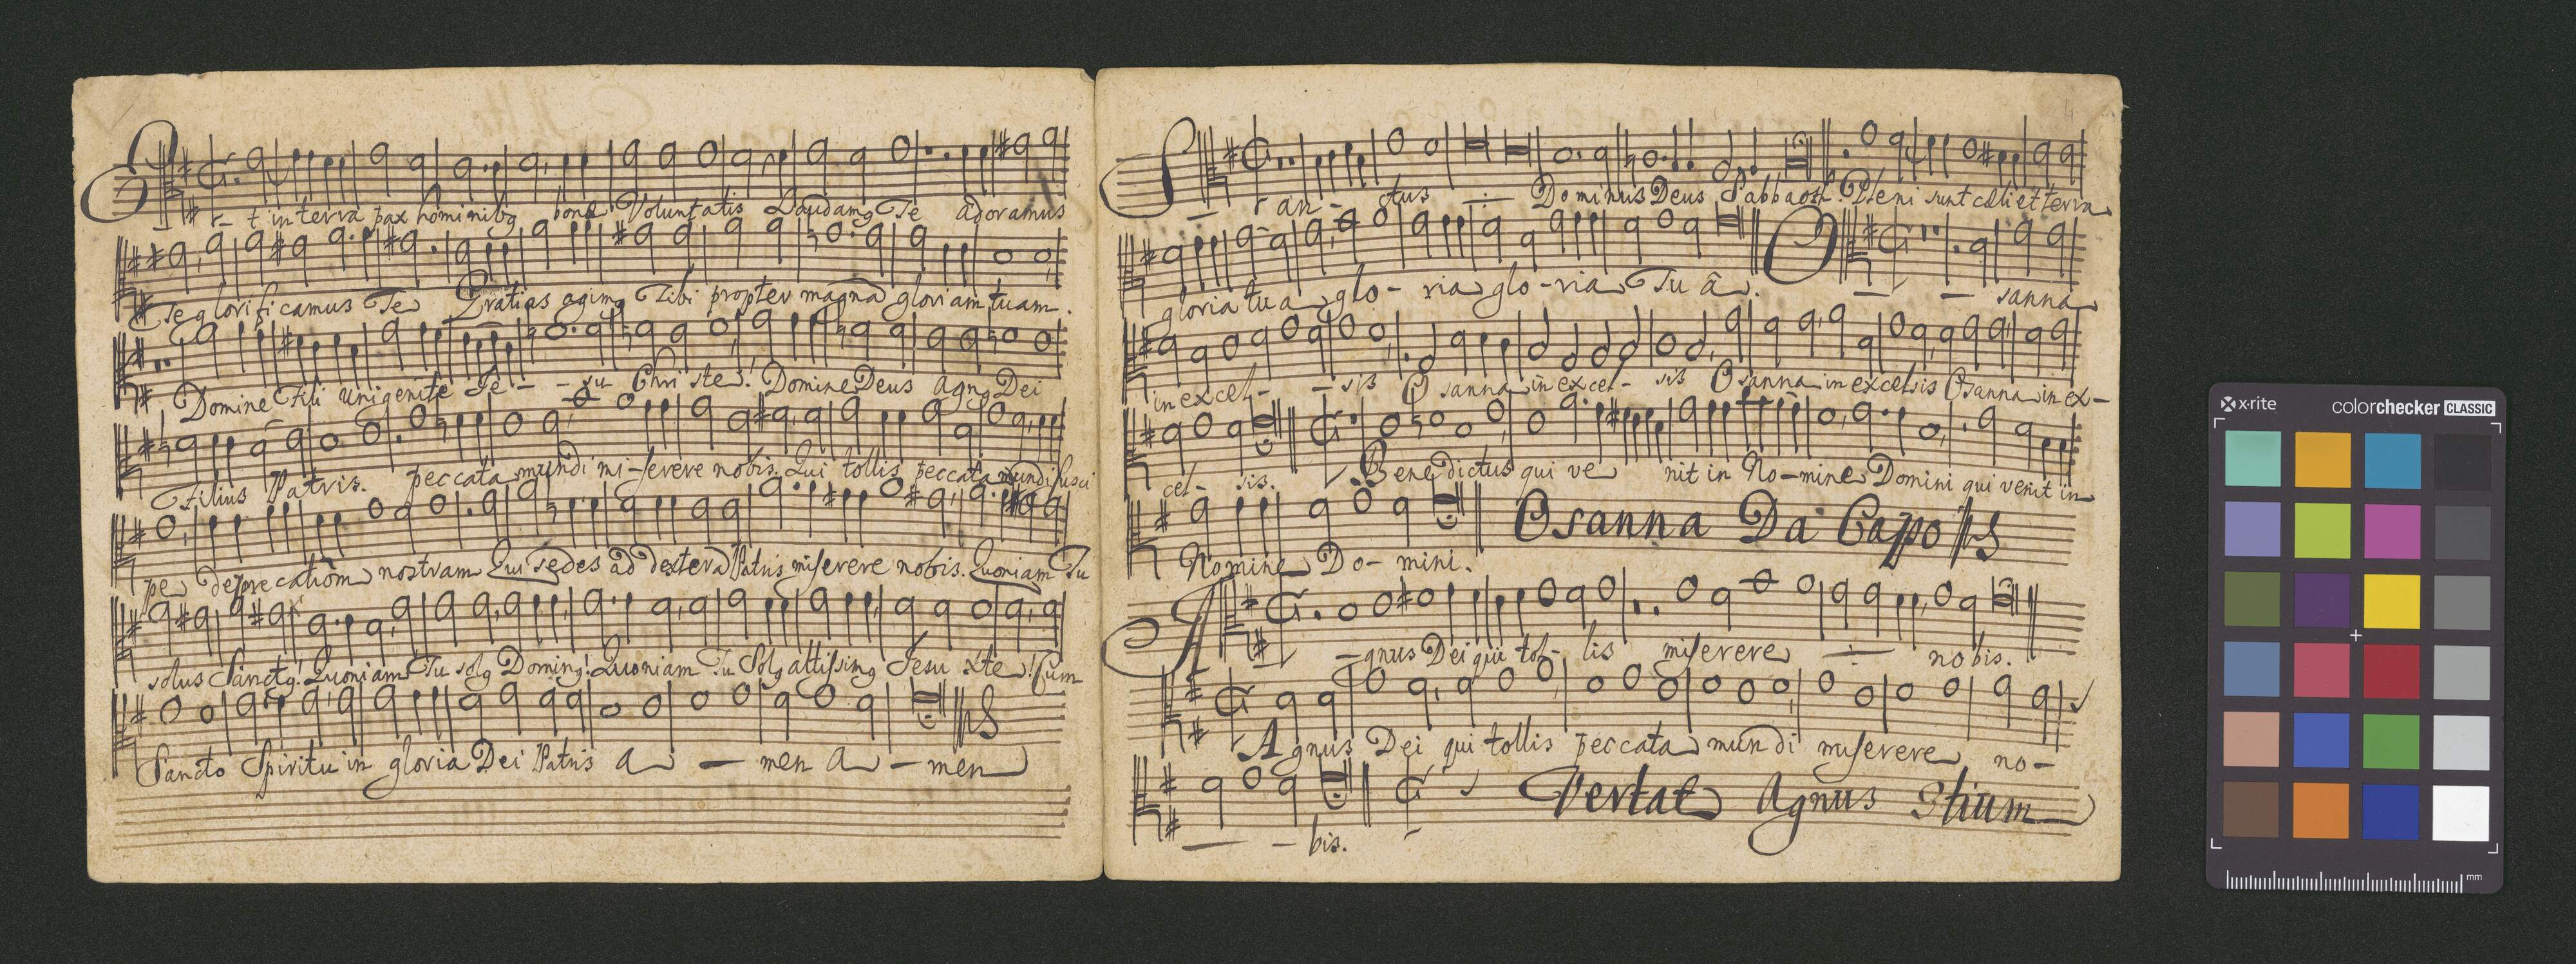 Et in terra pax hominibg bonæ Voluntatis Laudamg Te adoramus
Te glorificamus Te Gratias agimg Tibi propter magna gloriam tuam.
Domine Fili Unigenite Je - - su Christe! Domine Deus agng Dei
Filius Patris. peccata mundi mi-serere nobis. Qui tollis peccata mundi susci
pe deprecationm nostram Qui sedes ad dextera Patris miserere nobis. Quoniam Tu
solus Sanctg! Quoniam Tu solg Doming! Quoniam Tu Solg altissimg Jesu xte! Cum
Sancto Spiritu in gloria Dei Patris a — men a - men
4
San - ctus ÷ Dominus Deus Sabbaoth. Pleni sunt cæli et terra
gloria tua glo - ria glo - ria Tu â. O — — sanna
in excel - - sis Osanna in excel - sis Osanna in excelsis Osanna in ex -
cel - sis. Benedictus qui ve nit in No - mine Domini qui venit in
Nomine Do - mini. Osanna Da Capo
A - gnus Dei qui tol - lis miserere ÷ nobis.
Agnus Dei qui tollis peccata mundi miserere no -
— - bis. Vertat Agnus 3tium
x·rite colorchecker CLASSIC
mm